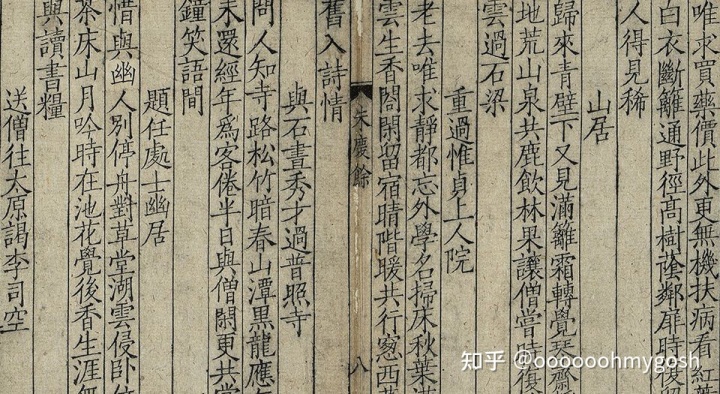 唯求買藥價此外更無機扶病看紅葉
白衣斷籬通野徑高樹蔭鄰扉時後
人得見稀
山居
歸來青壁下又見滿籬霜轉覺琴齋
地荒山泉共鹿飲林果讓僧嘗時復
雲過石梁
重過惟貞上人院
老去唯求靜都忘外學名掃床秋葉滿
雲生香閤閑留宿晴階暖共行窗西
朱慶餘
八
舊入詩情
與石晝秀才過普照寺
問人知寺路松竹暗春山潭黑龍應
未還經年為客倦半日與僧閑更共嘗
鐘笑語間
題任處士幽居
惜與幽人別停舟對草堂湖雲侵臥
茶床山月吟時在池花覺後香生涯無
與讀書糧
送僧往太原謁李司空
知乎 @oooooohmygosh